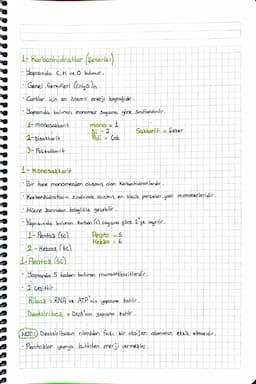 1- Karbonhidratlar (Şekerler)
- Yapısında C, H ve O bulunur.
- Genel formülleri (CH₂O)n
- Canlılar için en önemli enerji kaynağıdır.
- Yapısında bulunan monomer sayısına göre sınıflandırılır.
1- Monosakkarit mono = 1
2- Disakkarit Di = 2 Sakkarit = Şeker
3- Polisakkarit Poli = Çok
1- Monosakkarit
- Bir tane monomerden oluşmuş olan karbohidratlardır.
- Karbonhidratların sindirimle oluşmuş en küçük parçaları yani monomerleridir.
- Hücre zarından kolaylıkla geçebilir.
- Yapısında bulunan karbon (C) sayısına göre 2'ye ayrılır.
1- Pentoz (5C) Penta = 5
2- Heksoz (6C) Heksa = 6
1- Pentoz (5C)
- Yapısında 5 karbon bulunan monosakkaritlerdir.
- 2 çeşittir.
Riboz = RNA ve ATP'nin yapısına katılır.
Deoksiriboz = DNA'nın yapısına katılır.
NOT: Deoksiribozun ribozdan farkı bir oksijen atomunun eksik olmasıdır.
- Pentozlar yapıya katılırken enerji vermezler.